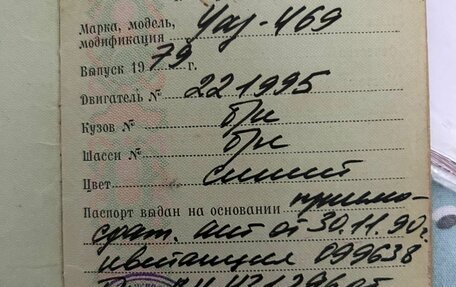 Марка, модель, Уаз-469
модификация
Выпуск 1979 г.
Двигатель № 221995
Кузов № б/н
Шасси № б/н
Цвет синий
Паспорт выдан на основании
акт от 30.11.90г.
квитанция 099638